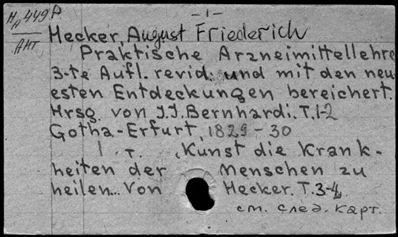 - 1 -
Hecker, August Friederich
Praktische Arzneimittellehre
3-te Aufl. revid. und mit den neu-
esten Entdeckungen bereichert.
Hrsg. von J.J. Bernhardi. T.1-2
Gotha-Erfurt, 1829-30
1 T. , Kunst die Krank-
heiten der Menschen zu
heilen... Von Hecker. T.3-4,
см. след. карт.